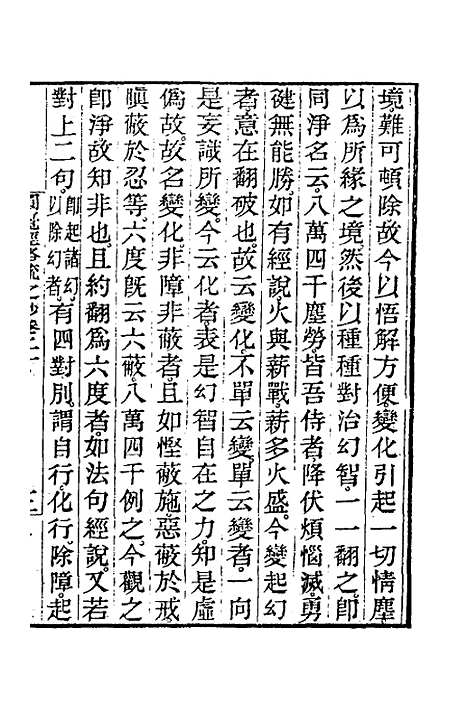 境難可頓除故今以悟解方便變化引起一切情塵
以為所緣之境然後以種種對治幻智一一翻之卽
同淨名云八萬四千塵勞皆吾侍者降伏煩惱滅勇
健無能勝如有經說火與薪戰薪多火盛今變起幻
者意在翻破也故云變化不單云變單云變者一向
是妄識所變今云化者表是幻智自在之力知是虛
偽故故名變化非障非蔽者且如慳蔽施惡蔽於戒
瞋蔽於忍等六度旣云六蔽八萬四千例之今觀之
卽淨故知非也且約翻為六度者如法句經說又若
對上二句卽起諸幻以除幻者有四對別謂自行化行除障起
圓覺經略疏之鈔卷二十